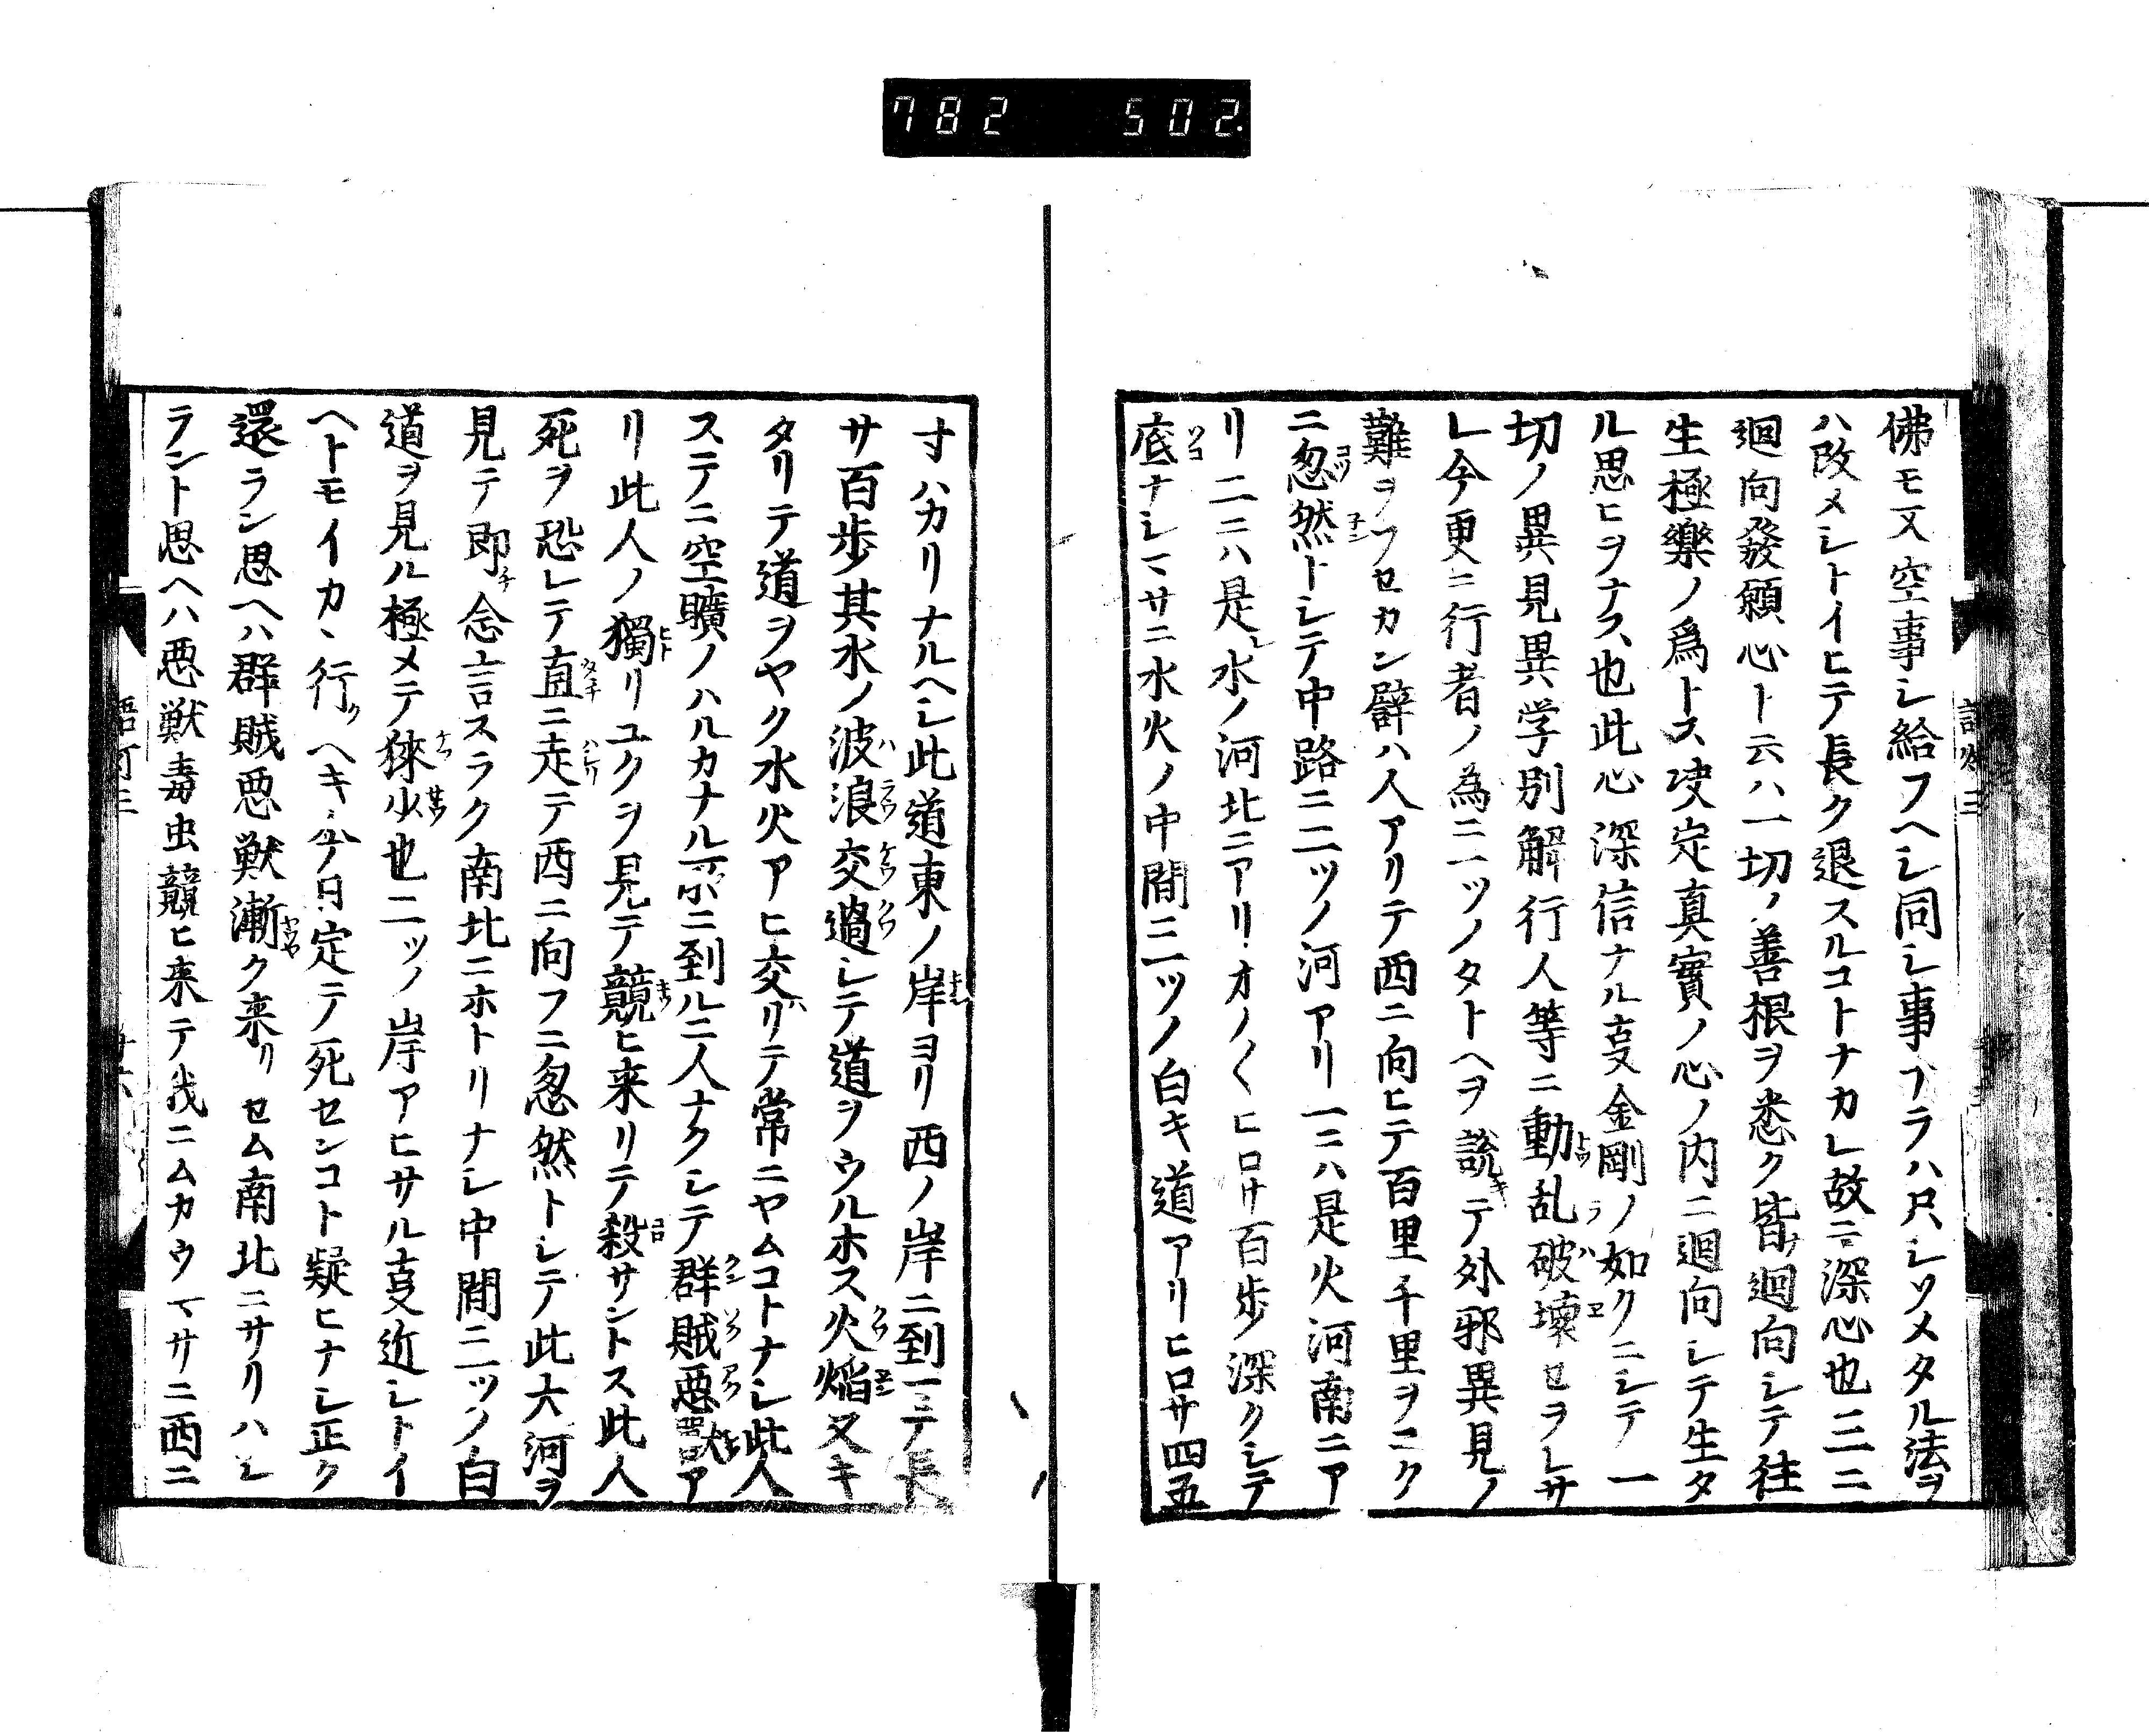 782 502
佛モ又空事シ給フヘシ同シ事フラハ只シツメタル法ヲ
ハ改メシトイヒテ長ク退スルコトナカレ故ニ深心也三ニ
迴向發願心ト云ハ一切ノ善根ヲ悉ク皆迴向シテ往
生極樂ノ爲トス决定真實ノ心ノ内ニ迴向シテ生タ
ル思ヒヲナス也此心深信ナル叓金剛ノ如クニシテ一
切ノ異見異学別解行人等ニ動乱破壊セラレサ
レ今更ニ行者ノ為ニ一ツノタトヘヲ説テ外邪異見ノ
難ヲフセカン譬ハ人アリテ西ニ向ヒテ百里千里ヲユク
ニ忽然トシテ中路ニ二ツノ河アリ一ニハ是火河南ニア
リ二ニハ是水ノ河北ニアリオノ〱ヒロサ百歩深クシテ
底ナシマサニ水火ノ中間ニ一ツノ白キ道アリヒロサ四五
寸ハカリナルヘシ此道東ノ岸ヨリ西ノ岸ニ到ニテ長
サ百歩其水ノ波浪交過シテ道ヲウルホス火焔又キ
タリテ道ヲヤク水火アヒ交リテ常ニヤムコトナシ此人
ステニ空曠ノハルカナル所ニ到ルニ人ナクシテ群賊悪獸ア
リ此人ノ獨リユクヲ見テ競ヒ来リテ殺サントス此人
死ヲ恐レテ直ニ走テ西ニ向フニ忽然トシテ此大河ヲ
見テ即念言スラク南北ニホトリナシ中間ニ一ツノ白
道ヲ見ル極メテ狹少也二ツノ岸アヒサル叓近シトイ
ヘトモイカヽ行クヘキ今日定テ死センコト疑ヒナシ正ク
還ラン思ヘハ群賊悪獣漸ク来リセム南北ニサリハシ
ラント思ヘハ悪獣毒虫競ヒ来テ我ニムカウマサニ西ニ